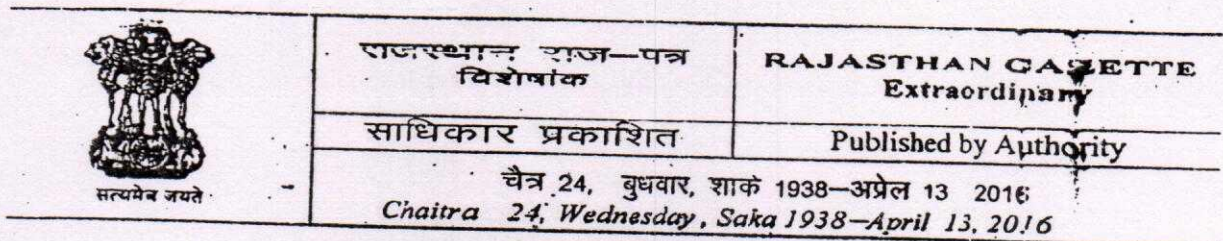 राजस्थान राज—पत्र
विशेषांक
RAJASTHAN GAZETTE
Extraordinary
साधिकार प्रकाशित
Published by Authority
सत्यमेव जयते
चैत्र 24, बुधवार, शाके 1938—अप्रेल 13 2016
Chaitra 24, Wednesday, Saka 1938—April 13, 2016